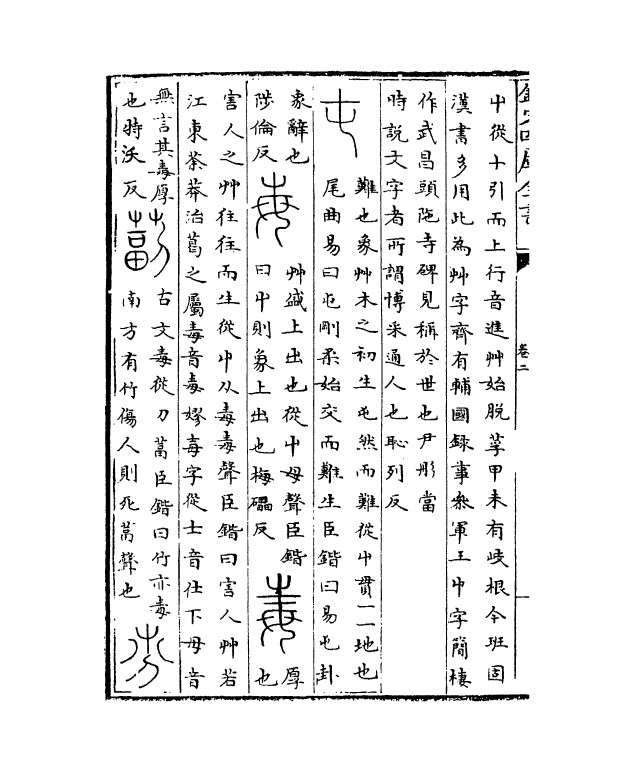 欽定四庫全書
卷二
屮從十引而上行音進艸始脫莩甲未有歧根今班固
漢書多用此為艸字齊有輔國錄事參軍王屮字簡棲
作武昌頭陁寺碑見稱於世也尹彤當
時說文字者所謂博采通人也恥列反
屯
難也象艸木之初生屯然而難從屮貫一一地也
尾曲易曰屯剛柔始交而難生臣鍇曰易屯卦
彖辭也
陟倫反
每
艸盛上出也從屮母聲臣鍇
曰屮則象上出也梅磥反
毒
厚
也
害人之艸往往而生從屮从毒毒聲臣鍇曰害人艸若
江東荼莽治葛之屬毒音毒嫪毐字從士音仕下毋音
無言其毒厚
也特沃反
古文毒從刀葍臣鍇曰竹亦毒
南方有竹傷人則死葍聲也
芬